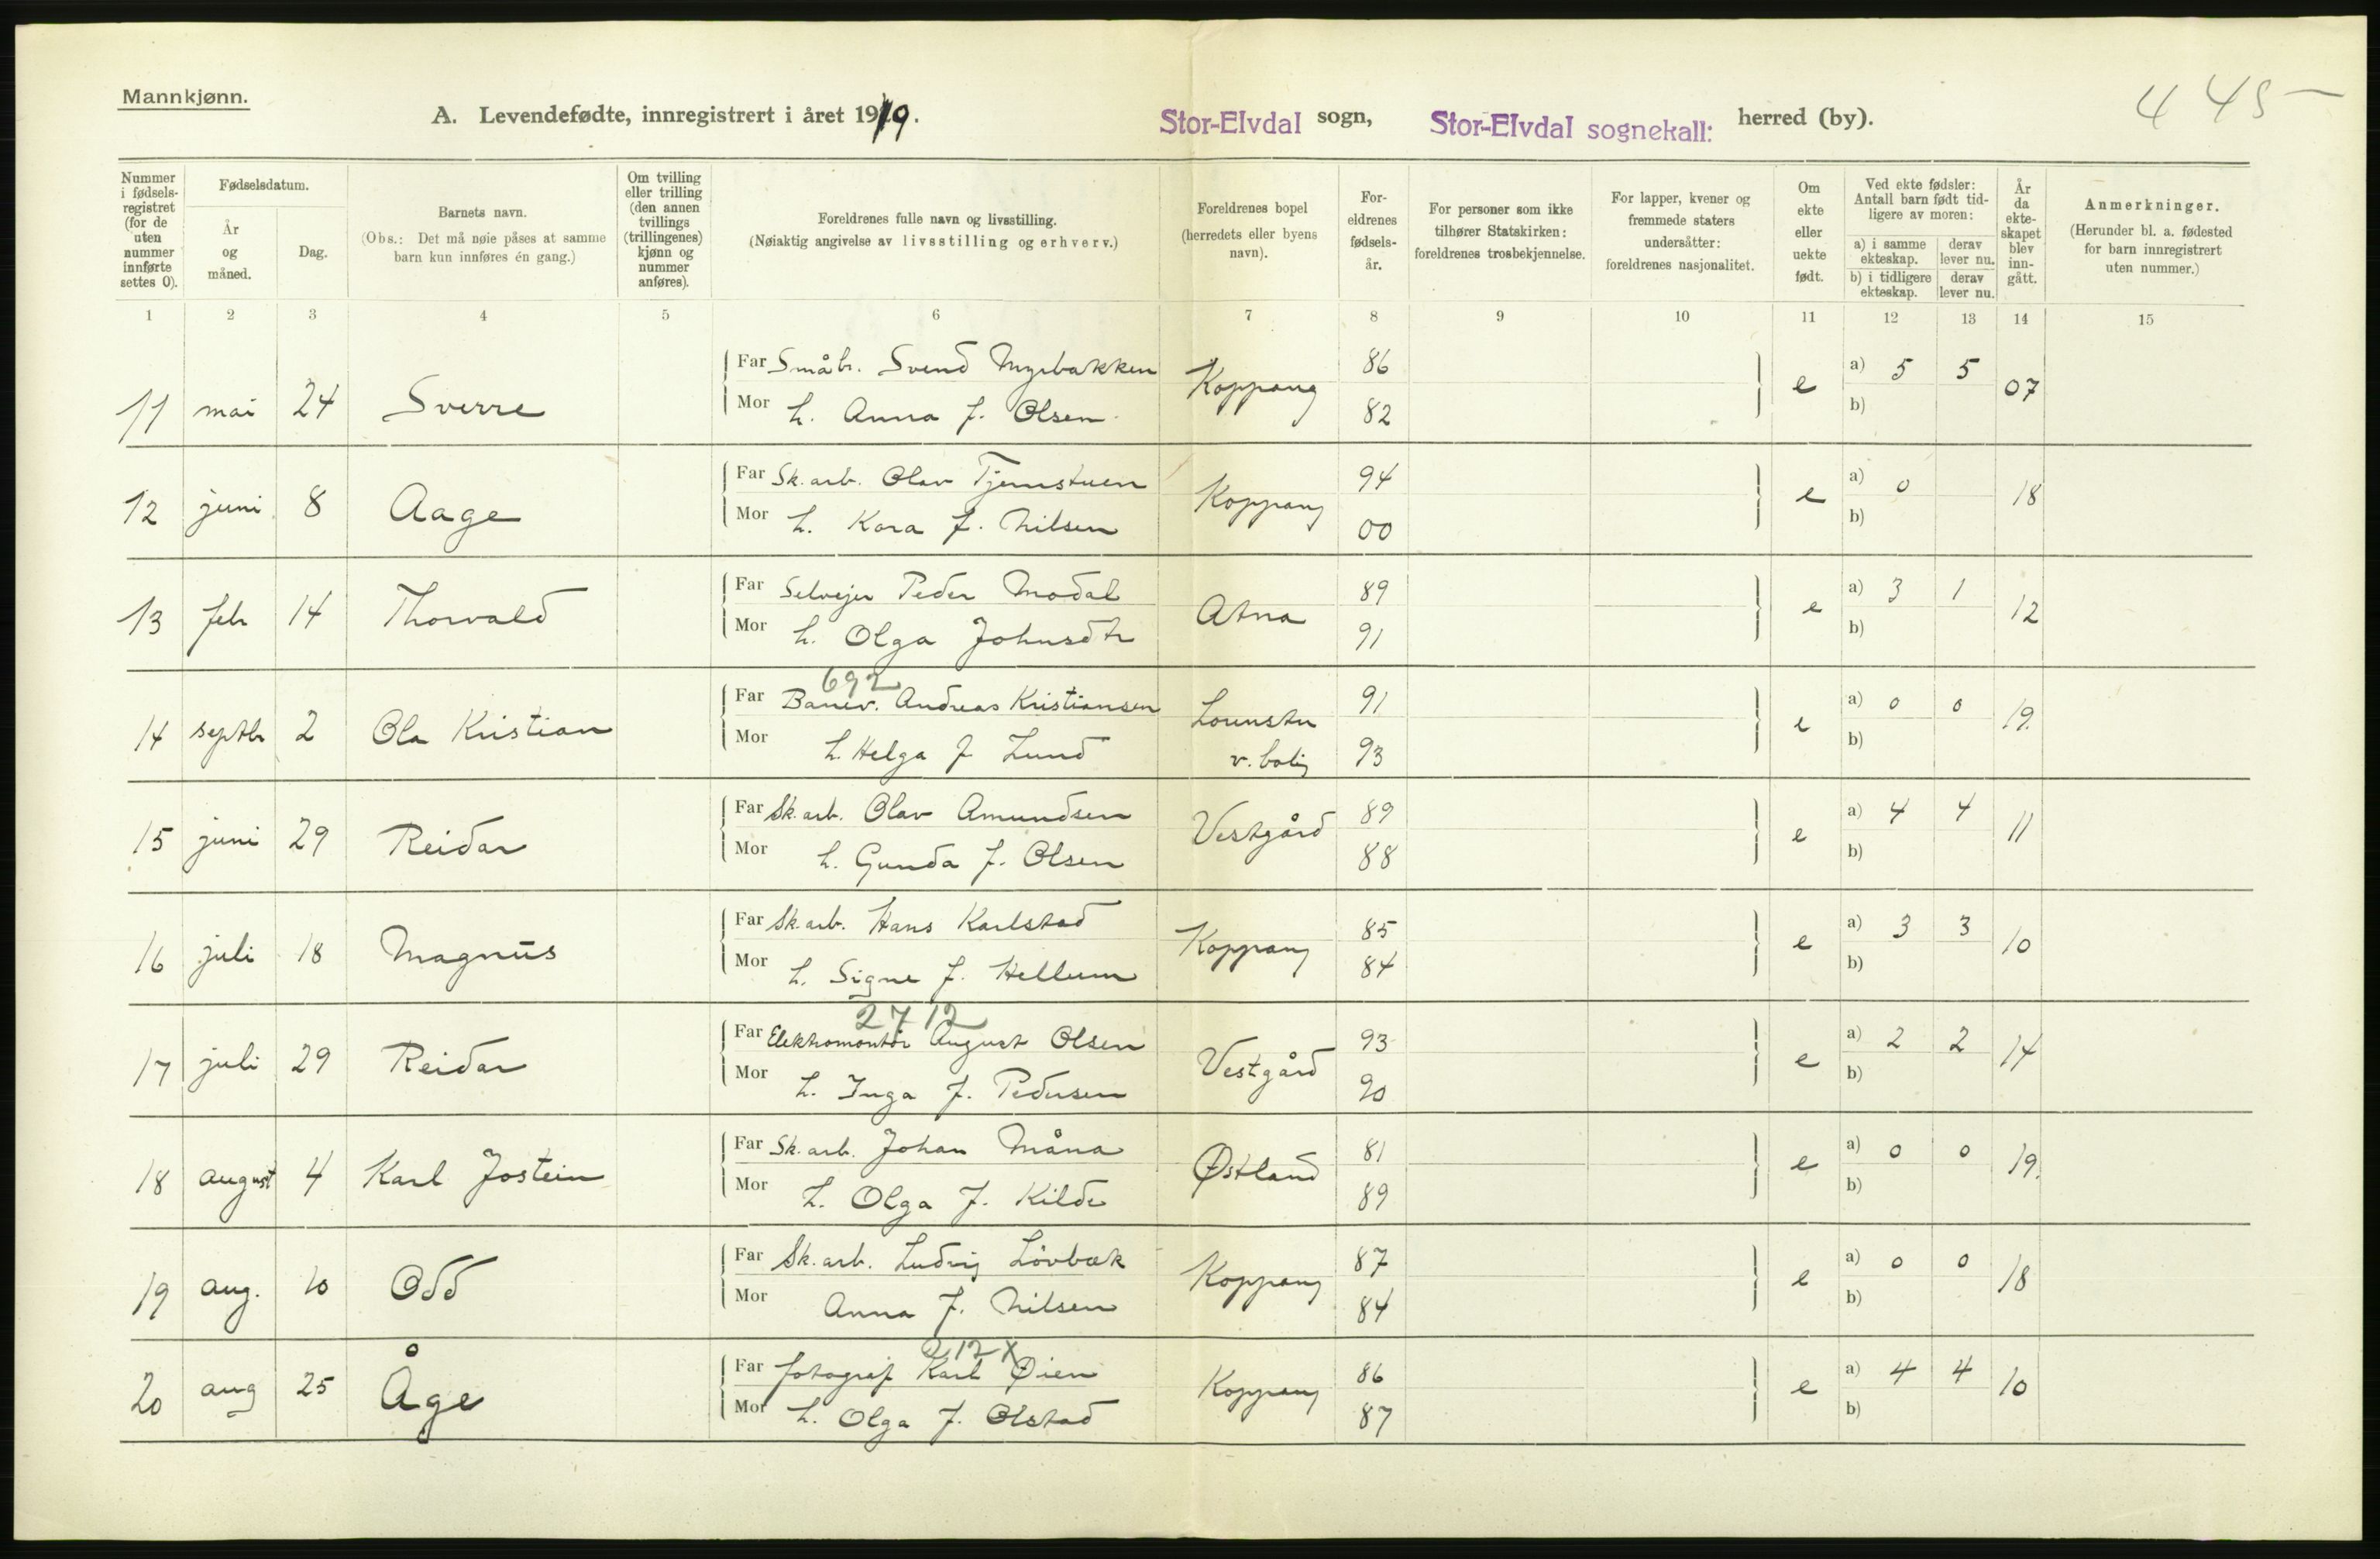 Mannkjønn.
A. Levendefødte, innregistrert i året 1919.
Stor-Elvdal sogn, Stor-Elvdal sognekall: herred (by).
445
Nummer i fødselsregistret (for de uten nummer innførte settes 0).
Fødselsdatum.
År og måned.
Dag.
Barnets navn.
(Obs.: Det må nøie påses at samme barn kun innføres én gang.)
Om tvilling eller trilling (den annen tvillings (trillingenes) kjønn og nummer anføres).
Foreldrenes fulle navn og livsstilling.
(Nøiaktig angivelse av livsstilling og erhverv.)
Foreldrenes bopel (herredets eller byens navn).
Foreldrenes fødselsår.
For personer som ikke tilhører Statskirken: foreldrenes trosbekjennelse.
For lapper, kvener og fremmede staters undersåtter: foreldrenes nasjonalitet.
Om ekte eller uekte født.
Ved ekte fødsler: Antall barn født tidligere av moren:
a) i samme ekteskap. derav lever nu.
b) i tidligere ekteskap. derav lever nu.
År da ekteskapet blev inngått.
Anmerkninger.
(Herunder bl. a. fødested for barn innregistrert uten nummer.)
1 2 3 4 5 6 7 8 9 10 11 12 13 14 15
11 mai 24 Sverre Far Småbr. Svend Myrbakken Koppang 86 e a) 5 5 07
Mor h. Anna f. Olsen 82 b)
12 juni 8 Aage Far Sk. arb. Olav Tjernstuen Koppang 94 e a) 0 18
Mor h. Kara f. Nilsen 00 b)
13 febr 14 Thorvald Far Selvejer Peder Modal Atna 89 e a) 3 1 12
Mor h. Olga Johnsdtr 91 b)
692
14 septbr 2 Ola Kristian Far Banev. Andreas Kristiansen 91 e a) 0 0 19.
Mor h. Helga f Lund v. bolig 93 b)
15 juni 29 Reidar Far Sk. arb. Olav Amundsen Vestgård 89 e a) 4 4 11
Mor h. Gunda f. Olsen 88 b)
16 juli 18 Magnus Far Sk. arb. Hans Karlstad Koppang 85 e a) 3 3 10
Mor h. Signe f. Hellum 84 b)
2712
17 juli 29 Reidar Far Elektromontør August Olsen Vestgård 93 e a) 2 2 14
Mor h. Inga f. Pedersen 90 b)
18 august 4 Karl Jostein Far Sk. arb. Johan Måna Østland 81 e a) 0 0 19.
Mor h. Olga f. Kilde 89 b)
19 aug. 10 Odd Far Sk. arb. Ludvig Lövbæk Koppang 87 e a) 0 0 18
Mor Anna f. Nilsen 84 b)
212 X
20 aug 25 Åge Far fotograf Karl Øien Koppang 86 e a) 4 4 10
Mor h. Olga f. Olstad 87 b)